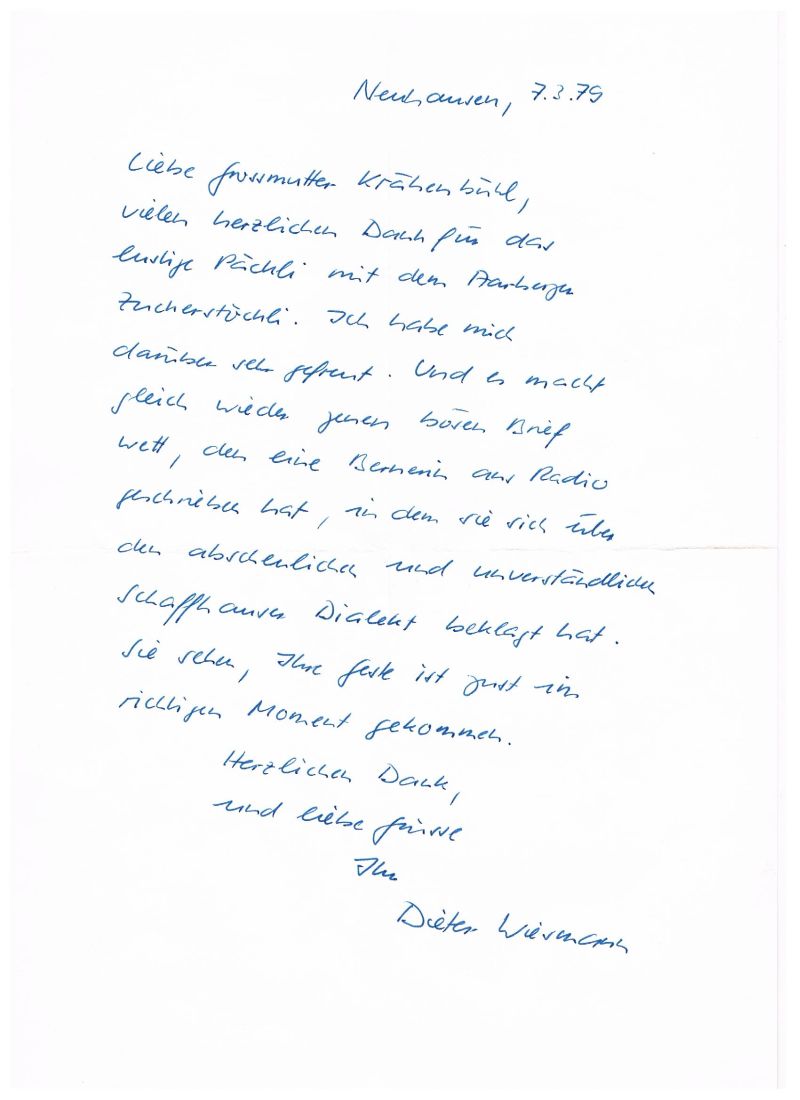 Neuhausen, 7.3.79
Liebe Grossmutter Krähenbühl,
vielen herzlichen Dank für das
lustige Päckli mit dem Aarberger
Zuckerstöckli. Ich habe mich
darüber sehr gefreut. Und es macht
gleich wieder jenen bösen Brief
wett, den eine Bernerin ans Radio
geschrieben hat, in dem sie sich über
den abscheulichen und unverständlichen
Schaffhauser Dialekt beklagt hat.
Sie sehen, Ihre Geste ist just im
richtigen Moment gekommen.
Herzlichen Dank,
und liebe Grüsse
Ihr
Dieter Wiesmann